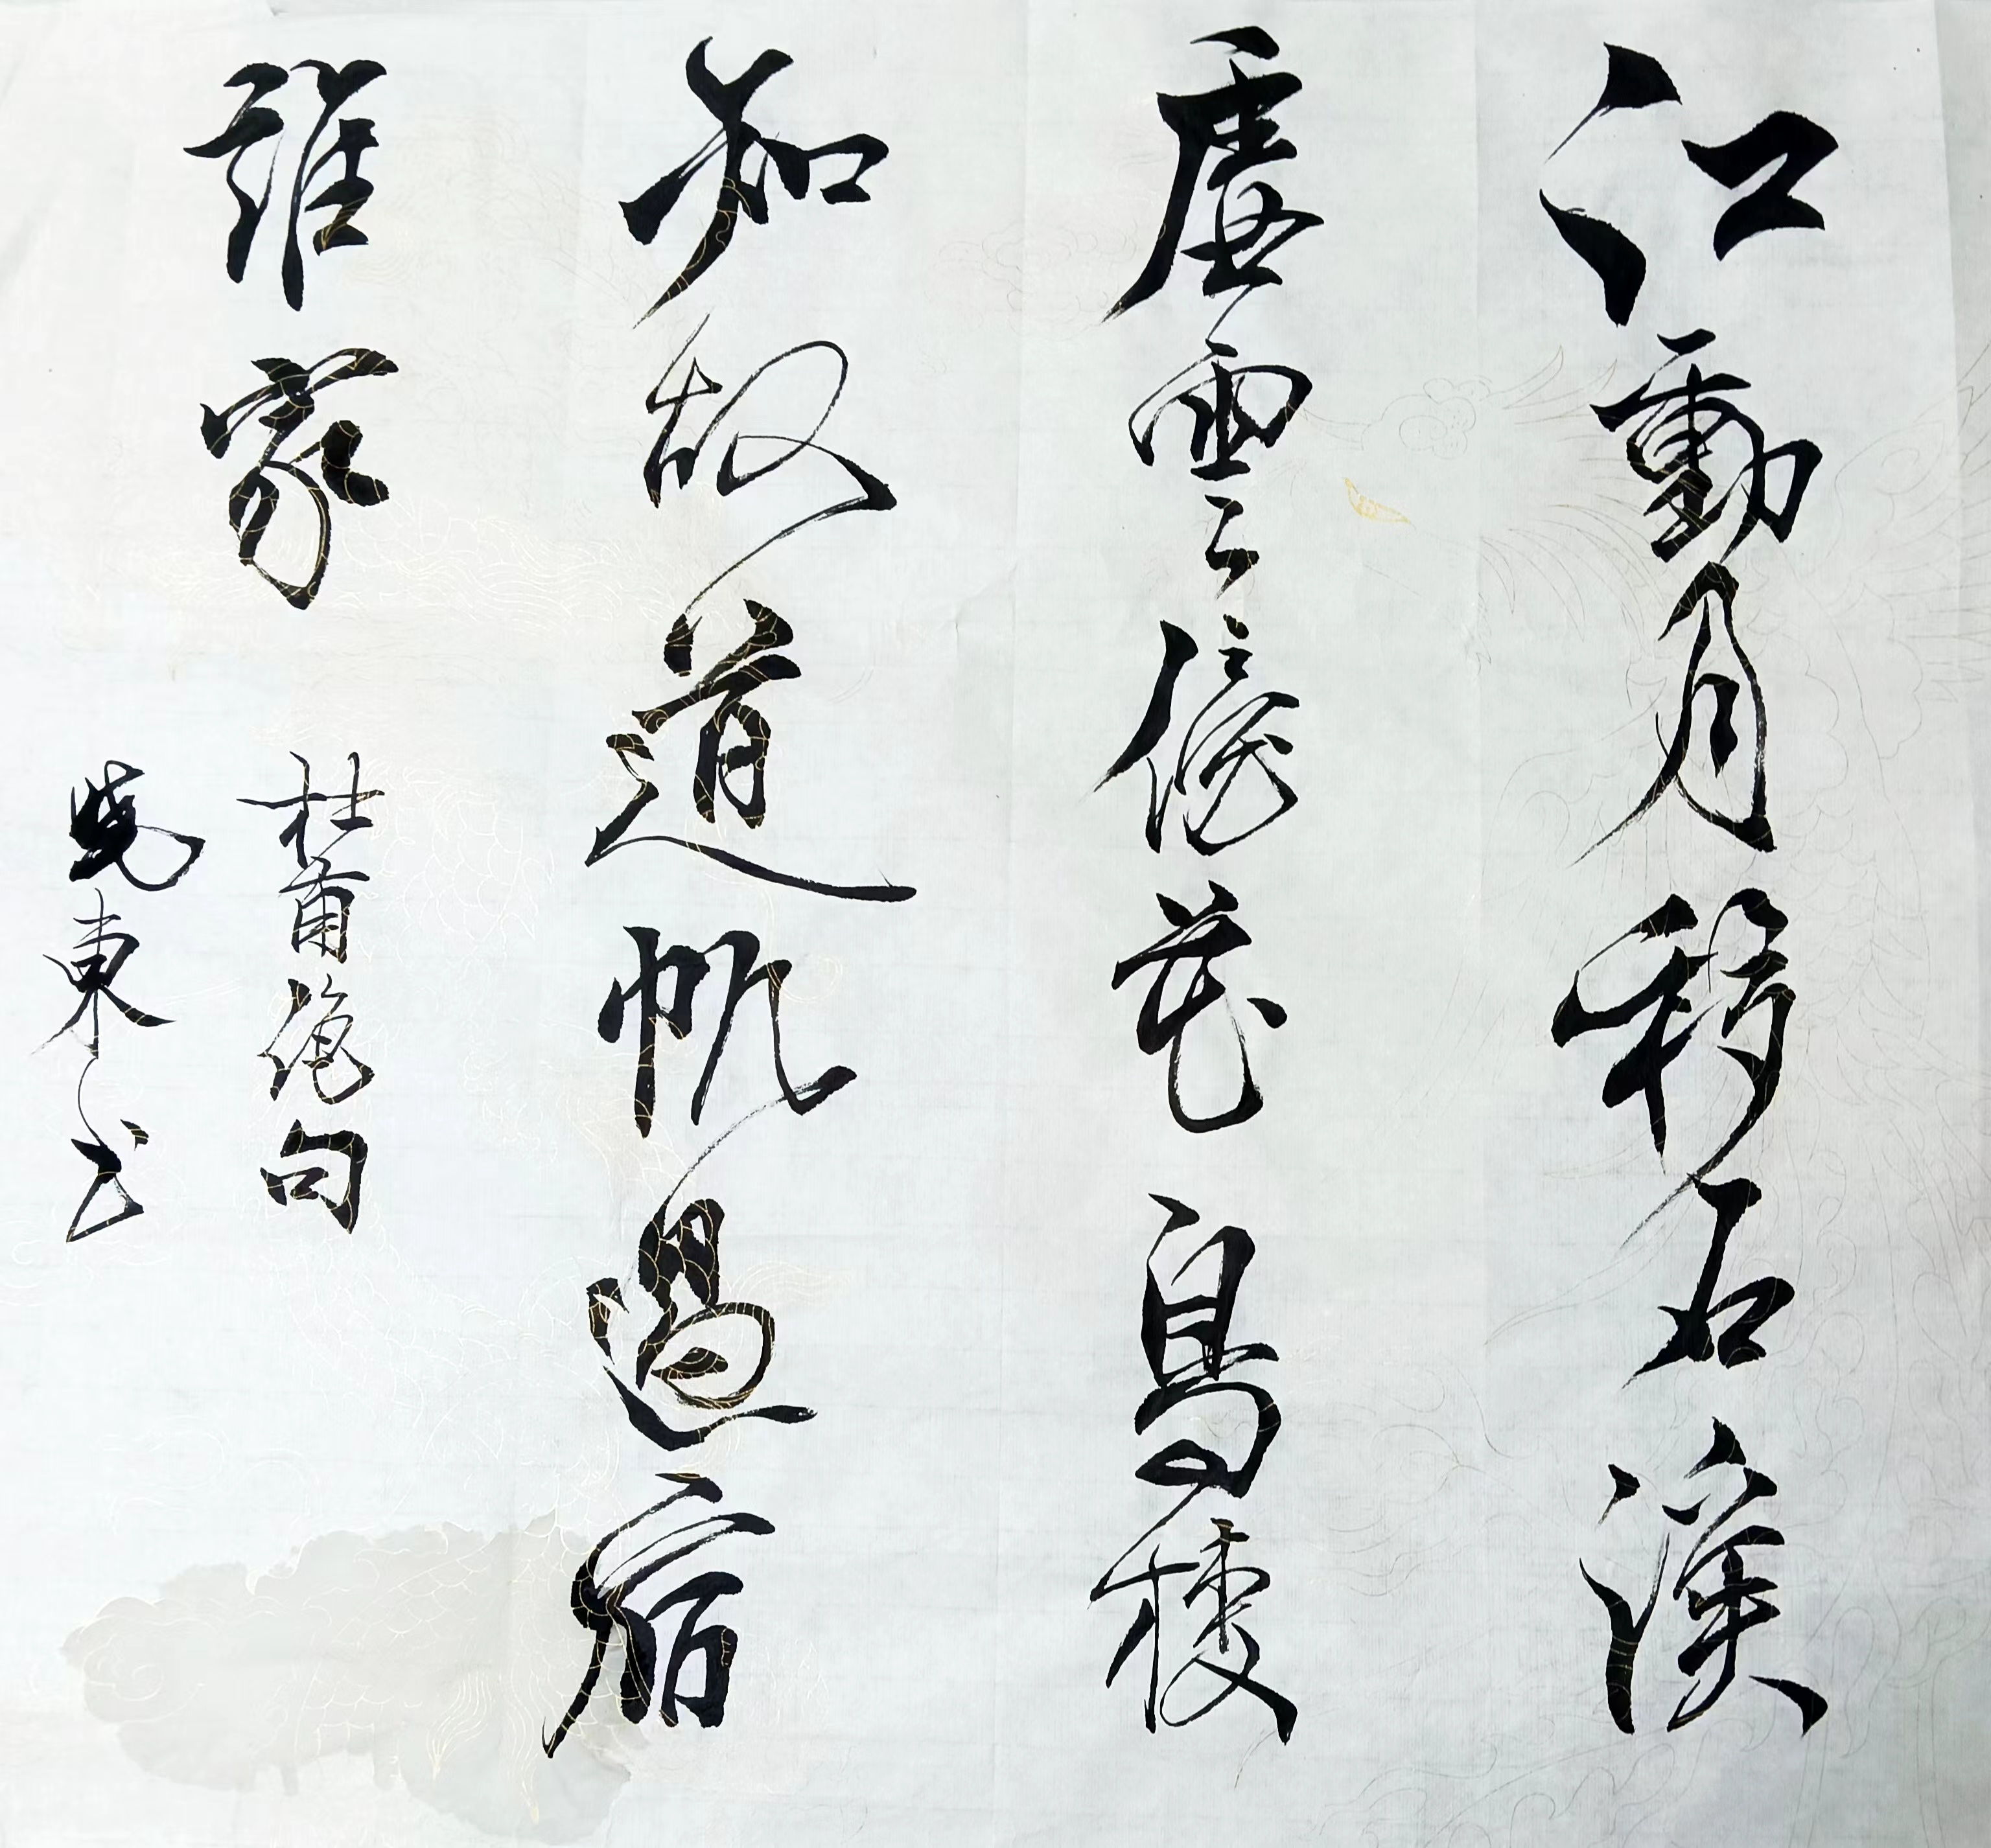 江動月移石溪
虛雲傍花鳥棲
知故道帆過宿
誰家 杜甫絕句
曉東书